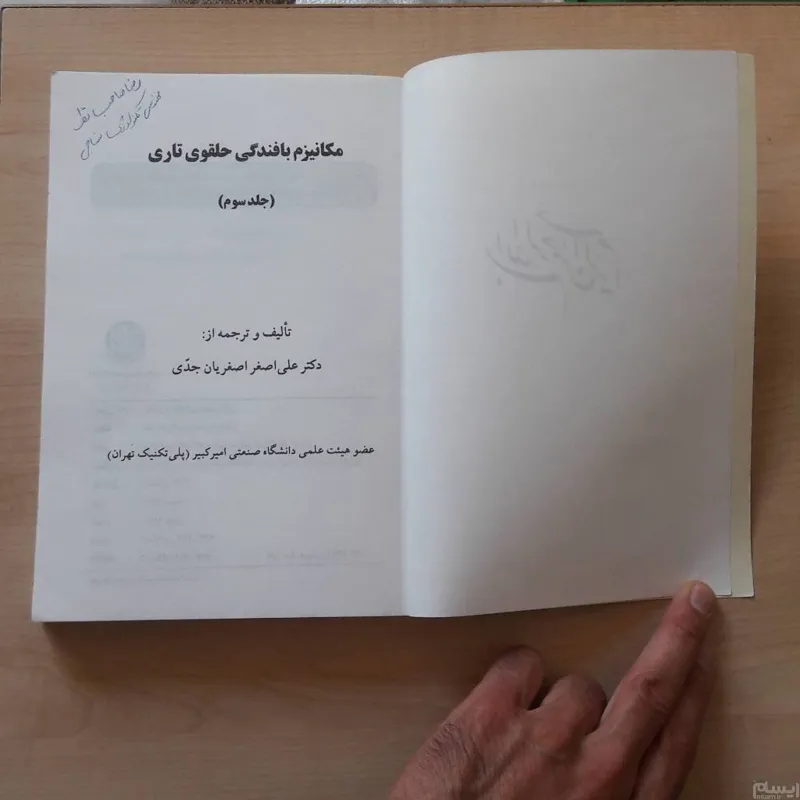 رضا صاحب نظر
مهندسی تکنولوژی نساجی
مکانیزم بافندگی حلقوی تاری
(جلد سوم)
تألیف و ترجمه از:
دکتر علی‌اصغر اصغریان جدّی
عضو هیئت علمی دانشگاه صنعتی امیرکبیر (پلی‌تکنیک تهران)
ایسام